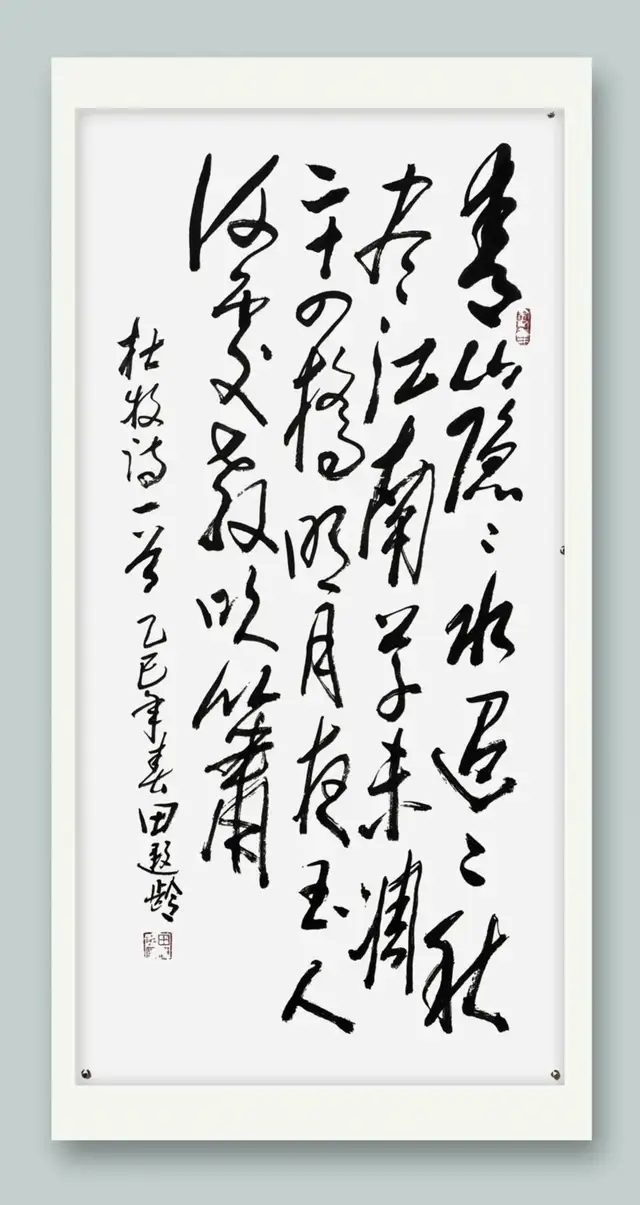 青山隐々水迢々秋
尽江南草未凋
二十四橋明月夜玉人
何處教吹簫
杜牧诗一首 乙巳年春 田遐龄